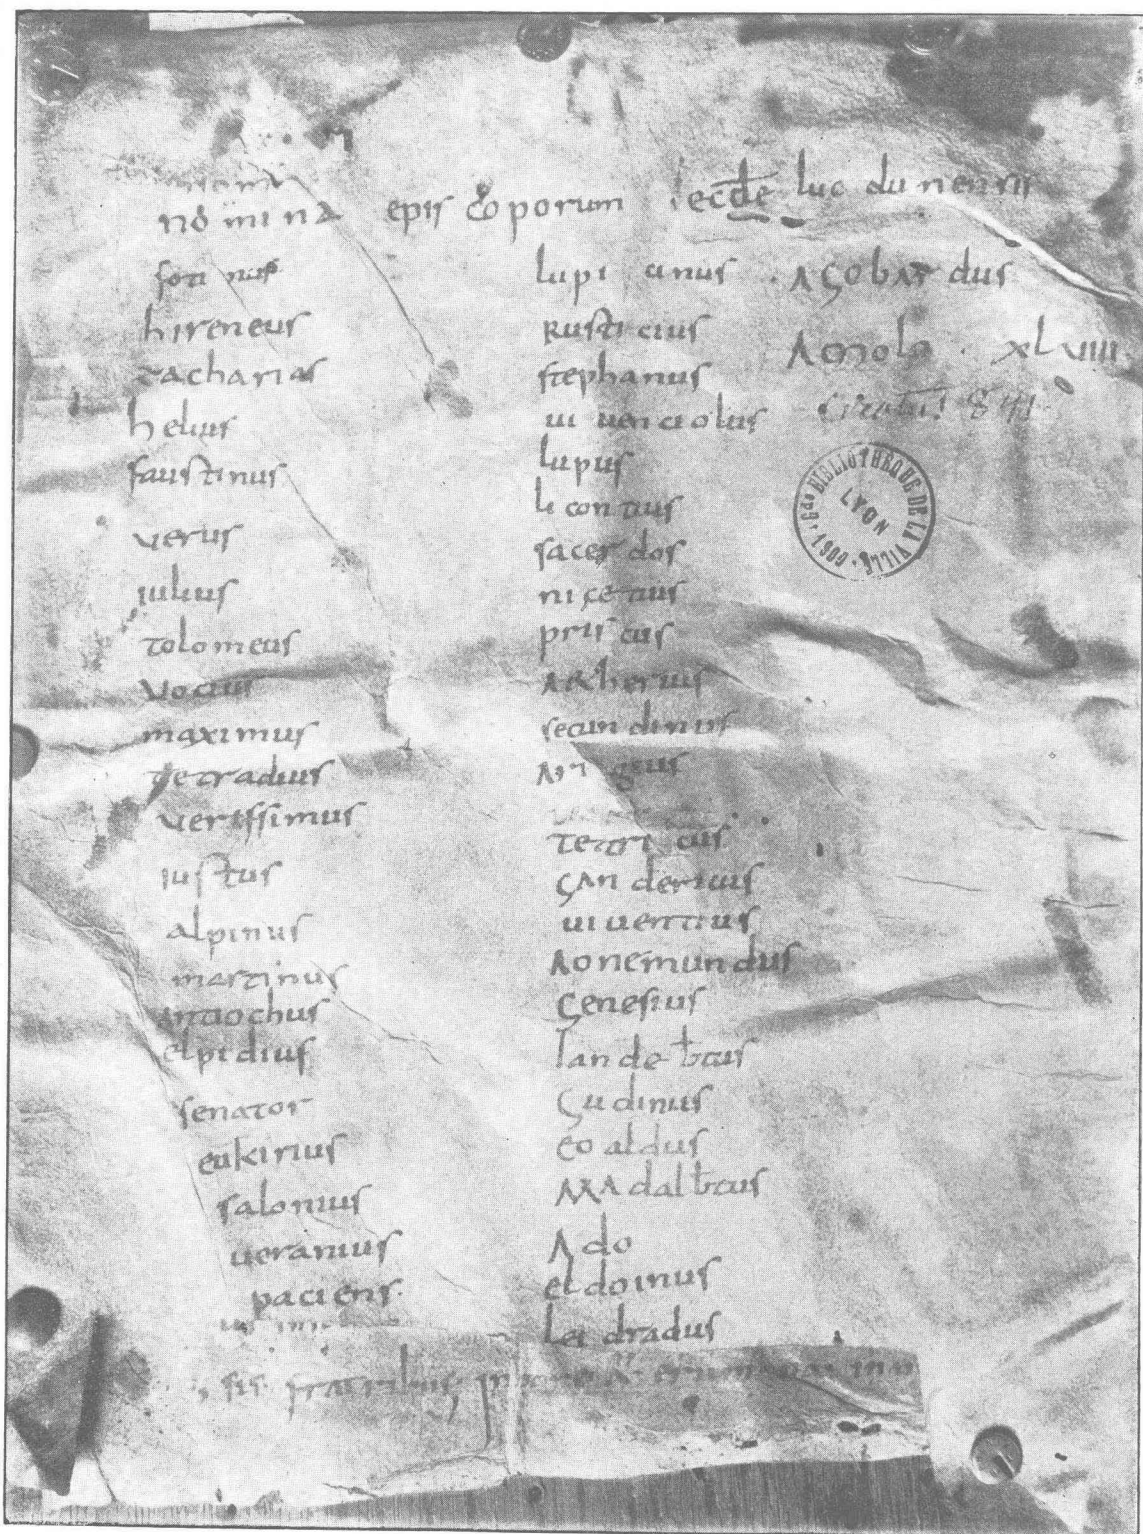 nomina episcoporum eccle lucdunensis
fotinus
hireneus
zacharias
helius
faustinus
verus
iulius
tolomeus
vocius
maximus
tetradius
verissimus
iustus
alpinus
martinus
antiochus
elpidius
senator
eukirius
salonius
ueranius
paciens
lupicinus
Rusticius
stephanus
uiuenciolus
lupus
licontius
sacerdos
nicetius
priscus
Aetherius
secundinus
Arigius
tetricus
Gandericus
uiuentius
Aonemundus
Genesius
landebtus
Gudinus
eoaldus
MAdalbtus
Ado
eldoinus
leidradus
AGobardus
Amolo . xlviiii
circa 841
Gde BIBLIOTHEQUE DE LA VILLE
LYON
1909
fratribus